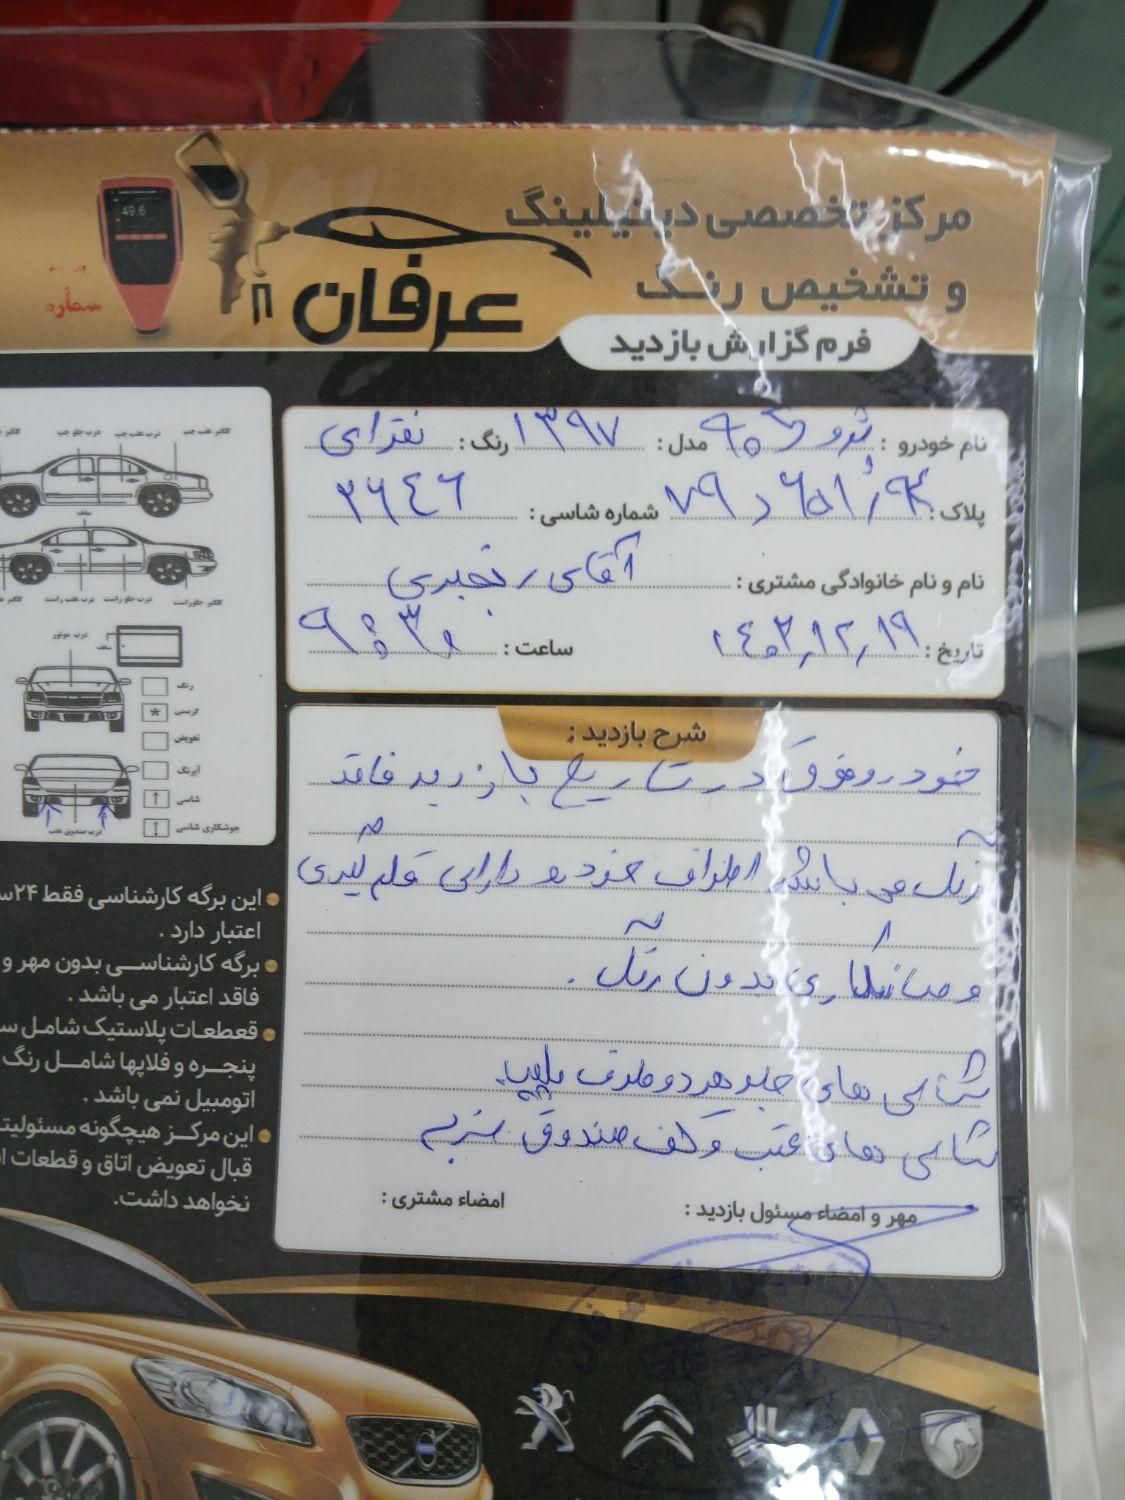 مرکز تخصصی دیتیلینگ
و تشخیص رنگ
عرفان
49.6
سماره
فرم گزارش بازدید
نام خودرو : پژو ۴۰۵ مدل : ۱۳۹۷ رنگ : نقره‌ای
پلاک : شماره شاسی : ۳۶۴۶
نام و نام خانوادگی مشتری : آقای رنجبری
تاریخ : ۱۴۰۳٫۱۲٫۱۹ ساعت : ۹:۳۰
شرح بازدید :
خودرو فوق در تاریخ بازدید فاقد
رنگ می باشد اطراف خودرو دارای قلم گیری
و صافکاری بدون رنگ .
شاسی های جلو هر دو طرف پلمپ
شاسی های عقب و کف صندوق ضربه
امضاء مشتری :
مهر و امضاء مسئول بازدید :
گلگیر عقب چپ
درب عقب چپ
درب جلو چپ
سقف
گلگیر جلو راست
درب جلو راست
درب عقب راست
درب موتور
سقف
رنگ
گریسی
*
تعویض
آبرنگ
شاسی
جوشکاری شاسی
درب صندوق عقب
این برگه کارشناسی فقط ۲۴
اعتبار دارد .
برگه کارشناسی بدون مهر و
فاقد اعتبار می باشد .
قعطعات پلاستیک شامل
پنجره و فلاپها شامل رنگ
اتومبیل نمی باشد .
این مرکز هیچگونه
قبال تعویض اتاق و قطعات
نخواهد داشت.